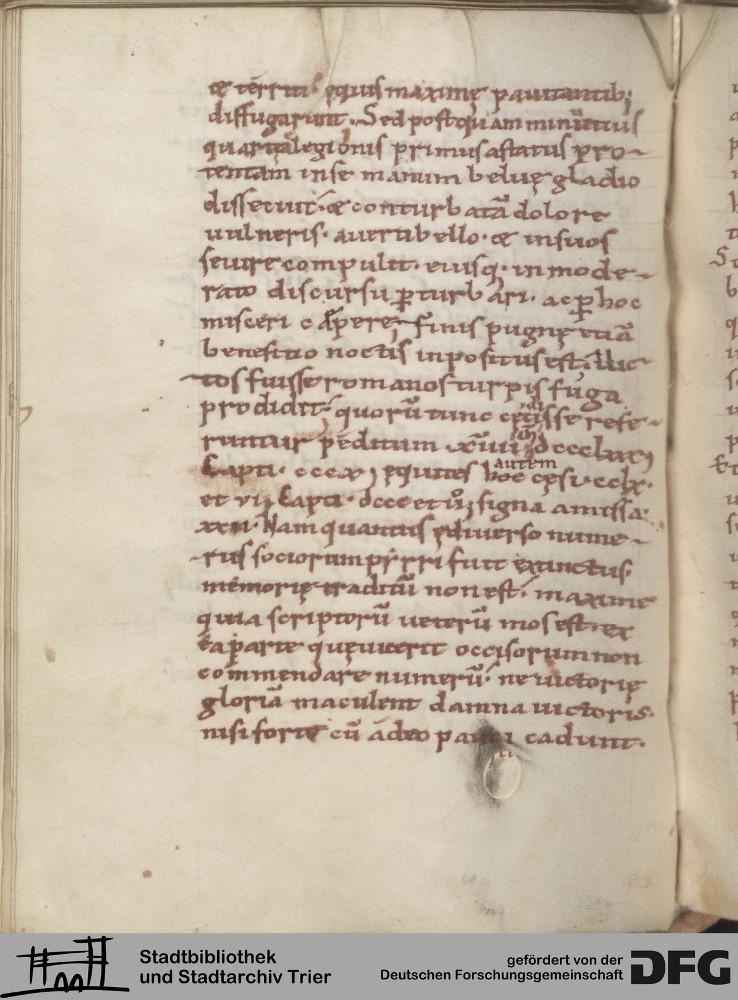 & territi equis maxime pauitantib;
diffugarunt. Sed postquam minutius
quartalegionis primus astatus pro-
tentam inse manum beluę gladio
dissecuit. & conturbatā dolore
uulneris. auerti bello. & insuos
seuire compulit. eiusq; inmode-
rato discursu ꝑturbari. ac ꝑ hoc
misceri cępere. Finis pugnę etiā
benefitio noctis inpositus est. Uic-
tos fuisse romanos turpis fuga
prodidit. quorū tunc cecidisse refe-
runtur peditum .xiiii. dccclxxx
Capti. cccx, equites autem
hoc cęsi. cclx.
et vii, Capti. dccc et ii, signa amissa.
xxii. Nam quantus ediuerso nume-
rus sociorum pyrri fuit exinctus
memorię traditū non est. maxime
quia scriptorū ueterū mos est. ex
ea parte quęuicerit occisorum non
commendare numerū. ne uictorię
gloriā maculent damna uictoris.
nisi forte cū adeo pauci cadunt.
Stadtbibliothek
und Stadtarchiv Trier
gefördert von der
Deutschen Forschungsgemeinschaft
DFG